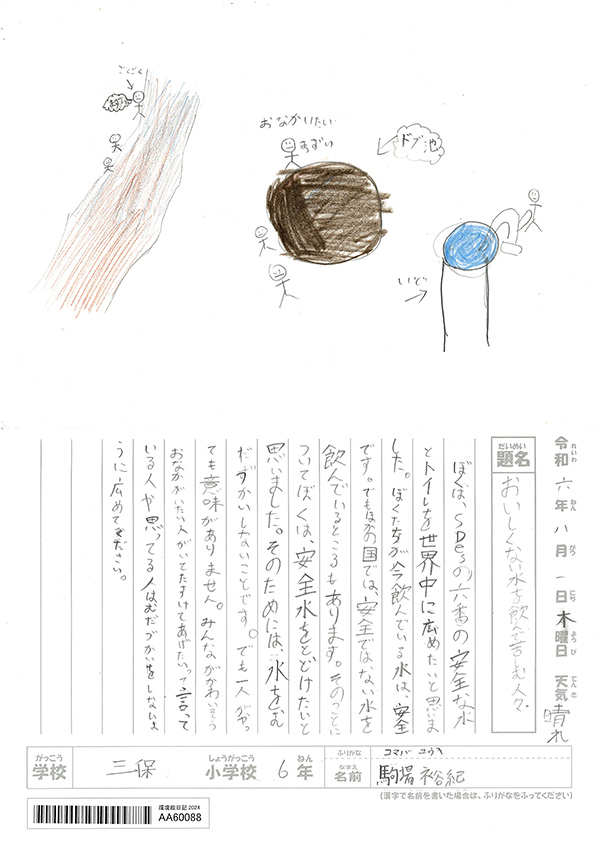 ごくごく
おなかいたい
まずい
ドブ池
いど
令和六年八月一日木曜日 天気 晴れ
れいわ ねん がつ にち ようび てんき
だいめい
題名
おいしくない水を飲んで苦しむ人々
ぼくは、SDGsの六番の安全な水
とトイレを世界中に広めたいと思いま
した。ぼくたちが今飲んでいる水は、安全
です。でもほかの国では、安全ではない水を
飲んでいるところもあります。そのことに
ついてぼくは、安全水をとどけたいと
思いました。そのためには、水をむ
だずかいしないことです。でも一人がやっ
ても意味がありません。みんながかわいそう
おなかがいたい人がいてたすけてあげたいって言って
いる人や思ってる人はむだづかいをしないよ
うに広めてください。
がっこう しょうがっこう ねん ふりがな コマバ ユウキ
学校 三保 小学校 6年 なまえ 名前 駒場 裕紀
(漢字で名前を書いた場合は、ふりがなをふってください)
環境絵日記2024
AA60088